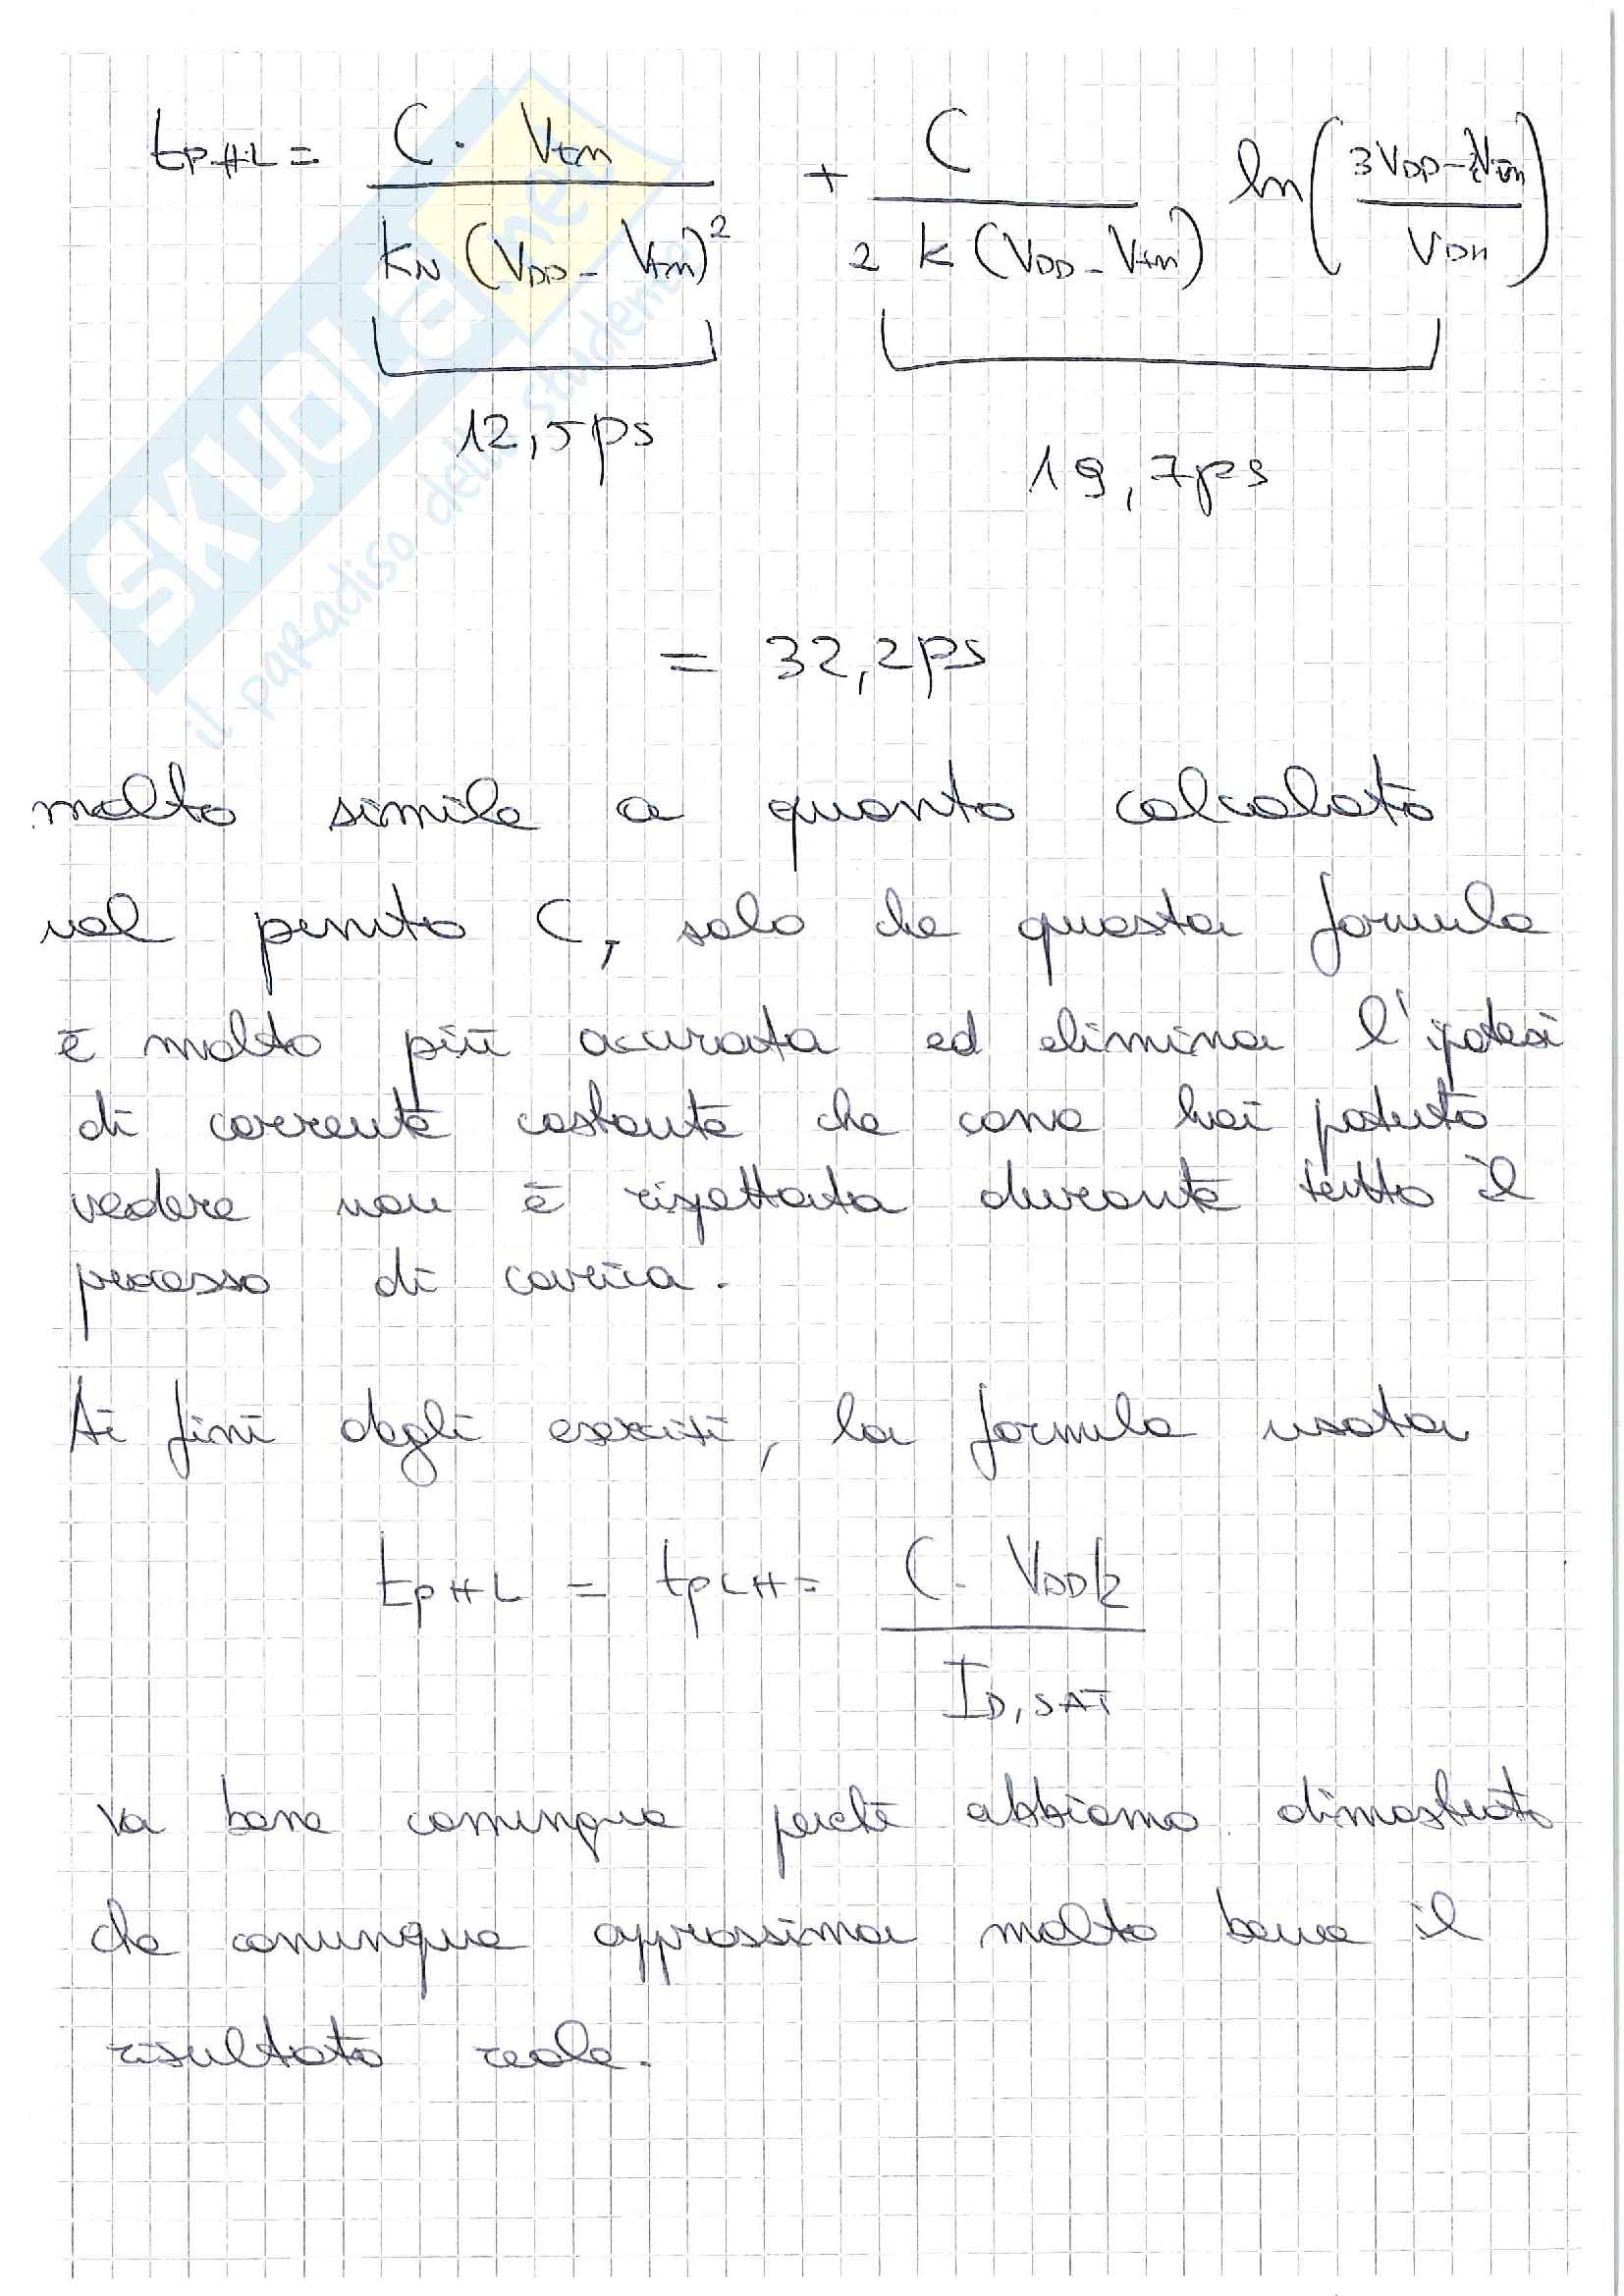 tpHL = C · Vtn / kN (VDD - Vtn)² + C / 2 k (VDD - Vtn) ln( 3VDD - 4Vtn / VDD )
12,5ps
19,7ps
= 32,2ps
molto simile a quanto calcolato
nel punto C, solo che questa formula
è molto più acurata ed elimina l'ipotesi
di corrente costante che come hai potuto
vedere non è rispettata durante tutto il
processo di carica.
Ai fini degli esercizi, la formula usata
tpHL = tpLH = C · VDD/2 / ID,SAT
va bene comunque perchè abbiamo dimostrato
che comunque approssima molto bene il
risultato reale.
SKUOLA.net
il paradiso dello studente